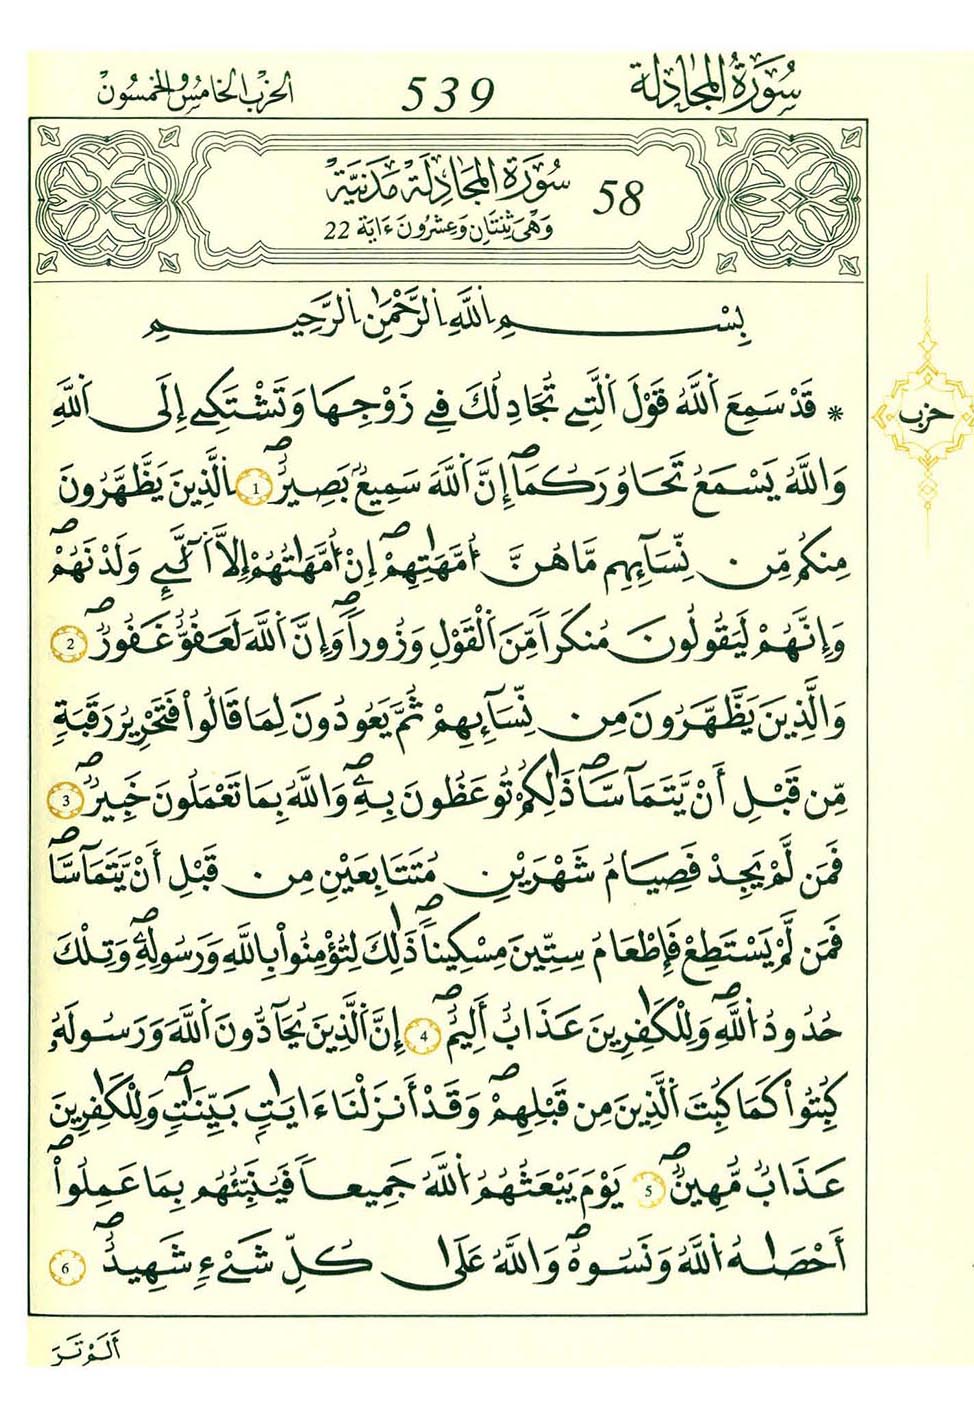 سُورَةُ المُجَادِلَة 539 الحزب الخامس والخمسون
58 سُورَةُ المُجَادِلَةِ مَدَنِيَّة
وَهْىَ ثِنْتَانِ وَعِشْرُونَ ءَايَة 22
بِسْمِ اِ۬للَّهِ اِ۬لرَّحْمَٰنِ اِ۬لرَّحِيمِ
* قَدْ سَمِعَ اَ۬للَّهُ قَوْلَ اَ۬لتِے تُجَٰدِلُكَ فِے زَوْجِهَا وَتَشْتَكِےٓ إِلَى اَ۬للَّهِ
حزب
وَاللَّهُ يَسْمَعُ تَحَاوُرَكُمَآۖ إِنَّ اَ۬للَّهَ سَمِيعُۢ بَصِيرٌۖ 1 اَ۬لَّذِينَ يَظَّهَّرُونَ
مِنكُم مِّن نِّسَآئِهِم مَّا هُنَّ أُمَّهَٰتِهِمْۖ إِنْ أُمَّهَٰتُهُمْ إِلَّا اَ۬لَّٰٓےِ وَلَدْنَهُمْۖ
وَإِنَّهُمْ لَيَقُولُونَ مُنكَراٗ مِّنَ اَ۬لْقَوْلِ وَزُوراٗۖ وَإِنَّ اَ۬للَّهَ لَعَفُوٌّ غَفُورٌۖ 2
وَالَّذِينَ يَظَّهَّرُونَ مِن نِّسَآئِهِمْ ثُمَّ يَعُودُونَ لِمَا قَالُواْ فَتَحْرِيرُ رَقَبَةٍ
مِّن قَبْلِ أَنْ يَّتَمَآسَّاۖ ذَٰلِكُمْ تُوعَظُونَ بِهِۦۖ وَاللَّهُ بِمَا تَعْمَلُونَ خَبِيرٌۖ 3
فَمَن لَّمْ يَجِدْ فَصِيَامُ شَهْرَيْنِ مُتَتَابِعَيْنِ مِن قَبْلِ أَنْ يَّتَمَآسَّاۖ
فَمَن لَّمْ يَسْتَطِعْ فَإِطْعَامُ سِتِّينَ مِسْكِيناٗۖ ذَٰلِكَ لِتُؤْمِنُواْ بِاللَّهِ وَرَسُولِهِۦۖ وَتِلْكَ
حُدُودُ اُ۬للَّهِۖ وَلِلْكَٰفِرِينَ عَذَابٌ أَلِيمٌۖ 4 إِنَّ اَ۬لَّذِينَ يُحَآدُّونَ اَ۬للَّهَ وَرَسُولَهُۥ
كُبِتُواْ كَمَا كُبِتَ اَ۬لَّذِينَ مِن قَبْلِهِمْۖ وَقَدْ أَنزَلْنَا ءَايَٰتِۢ بَيِّنَٰتٖۖ وَلِلْكَٰفِرِينَ
عَذَابٌ مُّهِينٌۖ 5 يَوْمَ يَبْعَثُهُمُ اُ۬للَّهُ جَمِيعاٗ فَيُنَبِّئُهُم بِمَا عَمِلُواْۖ
أَحْصَىٰهُ اُ۬للَّهُ وَنَسُوهُۖ وَاللَّهُ عَلَىٰ كُلِّ شَےْءٖ شَهِيدٌۖ 6
أَلَمْ تَرَ